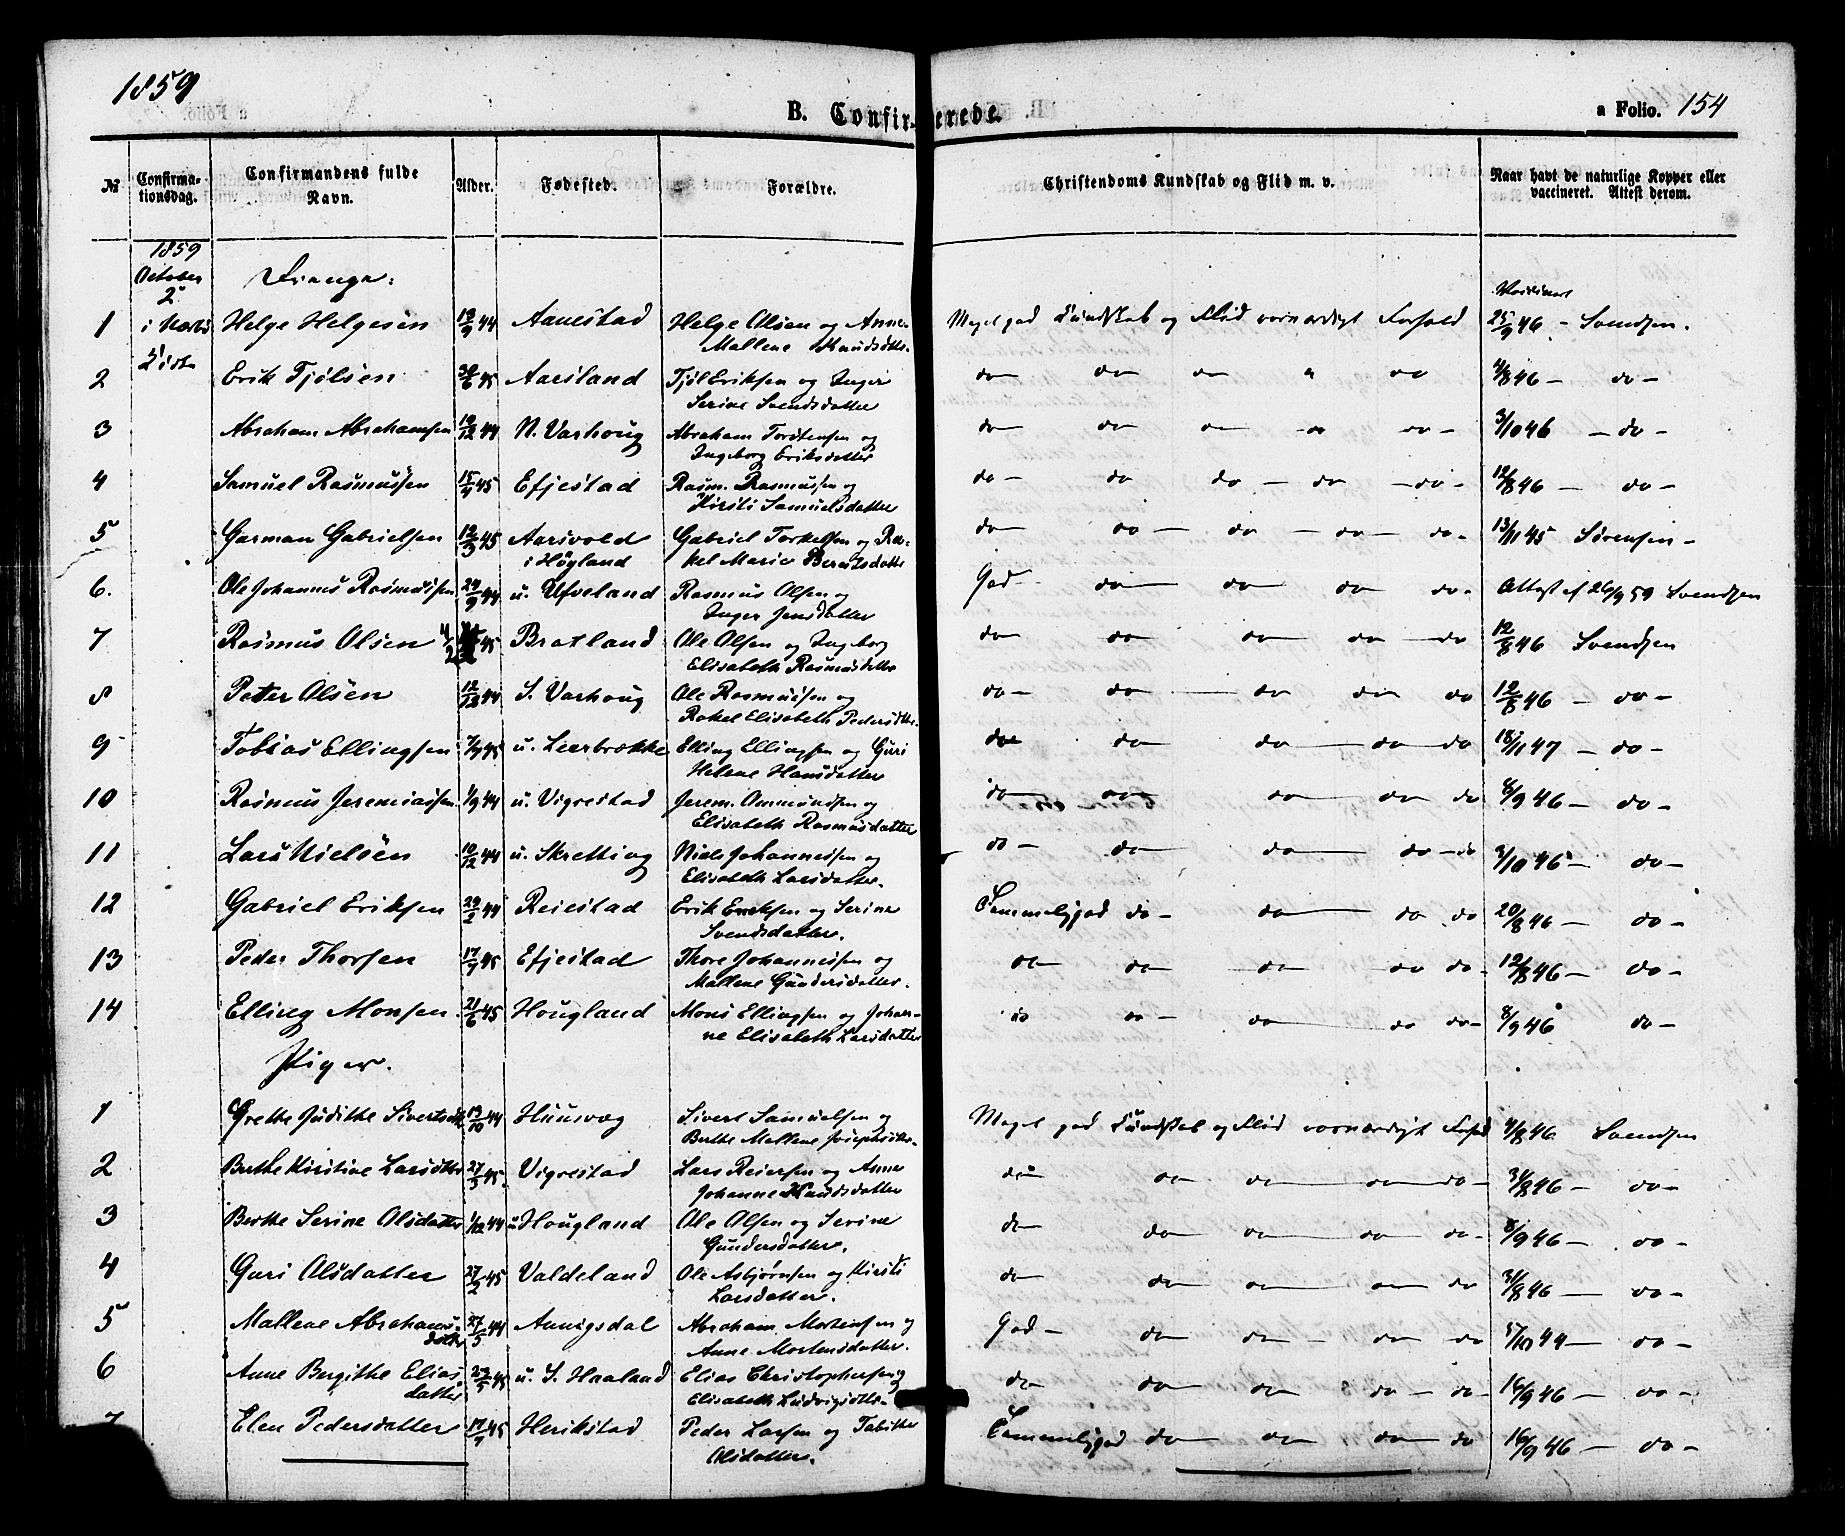 1859
B. Confirmerede.
a Folio. 154
№ Confirmationsdag. Confirmandens fulde Navn. Alder. Fødested. Forældre. Christendoms Kundskab og Flid m. v. Naar havt de naturlige Kopper eller vaccineret. Attest derom.
1859
October 2
Drenge:
1 Helge Helgesen 44 Aanestad Helge Olsen og Anne Meget god Kundskab og Flid 25/9 46 - Svendsen.
Mallene Knudsdtr.
2 Erik Tjølsen 45 Aarsland Tjøl Eriksen og Inger do do do 4/8 46 - do -
Serine Svendsdatter
3 Abraham Abrahamsen 44 N. Varhoug Abraham Tordtensen og do do do 3/10 46 - do -
Ingeborg Eriksdatter
4 Samuel Rasmussen 15/4 45 Efjestad Rasm. Rasmussen og do - do do - do - do - 12/8 46 - do -
Kirsti Samuelsdatter
5 Garman Gabrielsen 12/3 45 Aarsvold Gabriel Torkelsen og Ra- do do - do - do - do - 13/11 45 Sörensen -
i Högland kel Marie Berntsdatter
6. Ole Johannes Rasmussen 24/9 44 u. Ufveland Rasmus Olsen og God do do do do - Attest af 26/9 59 Svendsen
Inger Jensdatter
7 Rasmus Olsen 11/2 45 Bratland Ole Olsen og Ingeborg do do do do do 12/8 46 Svendsen
Elisabeth Rasmusdatter
8 Peter Olsen 12/12 44 S. Varhoug Ole Rasmussen og do - do do do do 12/8 46 - do -
Rakel Elisabeth Pedersdtr.
9 Tobias Ellingsen 7/7 45 u. Leerbrække Elling Ellingsen og Guri do do do do do 18/11 47 - do -
Helene Hansdatter
10 Rasmus Jeremiassen 1/9 44 u. Vigrestad Jerem. Ommundsen og do do do do do 8/9 46 - do -
Elisabeth Rasmusdatter
11 Lars Nielsen 10/12 44 u. Skretting Niels Johannessen og do - do do do - do 3/10 46 - do -
Elisabeth Larsdatter.
12 Gabriel Eriksen 44 Reiestad Erik Eriksen og Serine Temmelig god do - do do do 20/8 46 - do -
Svendsdatter.
13 Peder Thorsen 45 Efjestad Thore Johannessen og do do do do do - 12/8 46 - do -
Mallene Gundersdatter.
14 Elling Monsen 21/6 45 Hougland Mons Ellingsen og Johan- do do - do do do - 8/9 46 do -
ne Elisabeth Larsdatter
Piger.
1 Grethe Judithe Sivertsdtr 13/10 44 Huusvæg Sivert Samuelsen og Meget god Kundskab og Flid 4/8 46 Svendsen
Berthe Mallene Josephsdtr.
2 Berthe Kirstine Larsdtr 27/3 45. Vigrestad Lars Reiersen og Anne do do do do do - 31/8 46 - do -
Johanne Knudsdatter
3 Berthe Serine Olsdatter 1/12 44 u Hougland Ole Olsen og Serine do do do do do - 8/9 46 - do -
Gundersdatter.
4 Guri Olsdatter 27/2 45 Valdeland Ole Asbjørnsen og Kirsti do do do do do 31/8 46 - do -
Larsdatter.
5 Mallene Abrahams- 44 Annigsdal Abraham Mortensen og God - do do - do do 44 - do -
datter Anne Mortensdatter.
6 Anne Birgithe Elias 45 u. S. Haaland Elias Christophersen og do do do do - do - 16/9 46 - do -
datter Elisabeth Ludvigsdtr.
7 Elen Pedersdatter 45 Herikstad Peder Larsen og Tabithe Temmelig god do do do do 16/9 46 - do -
Olsdatter.